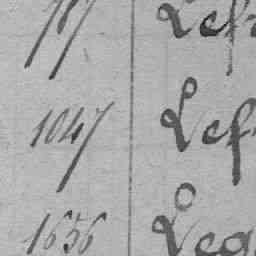 Lef
1047 Lef
1656 Leg